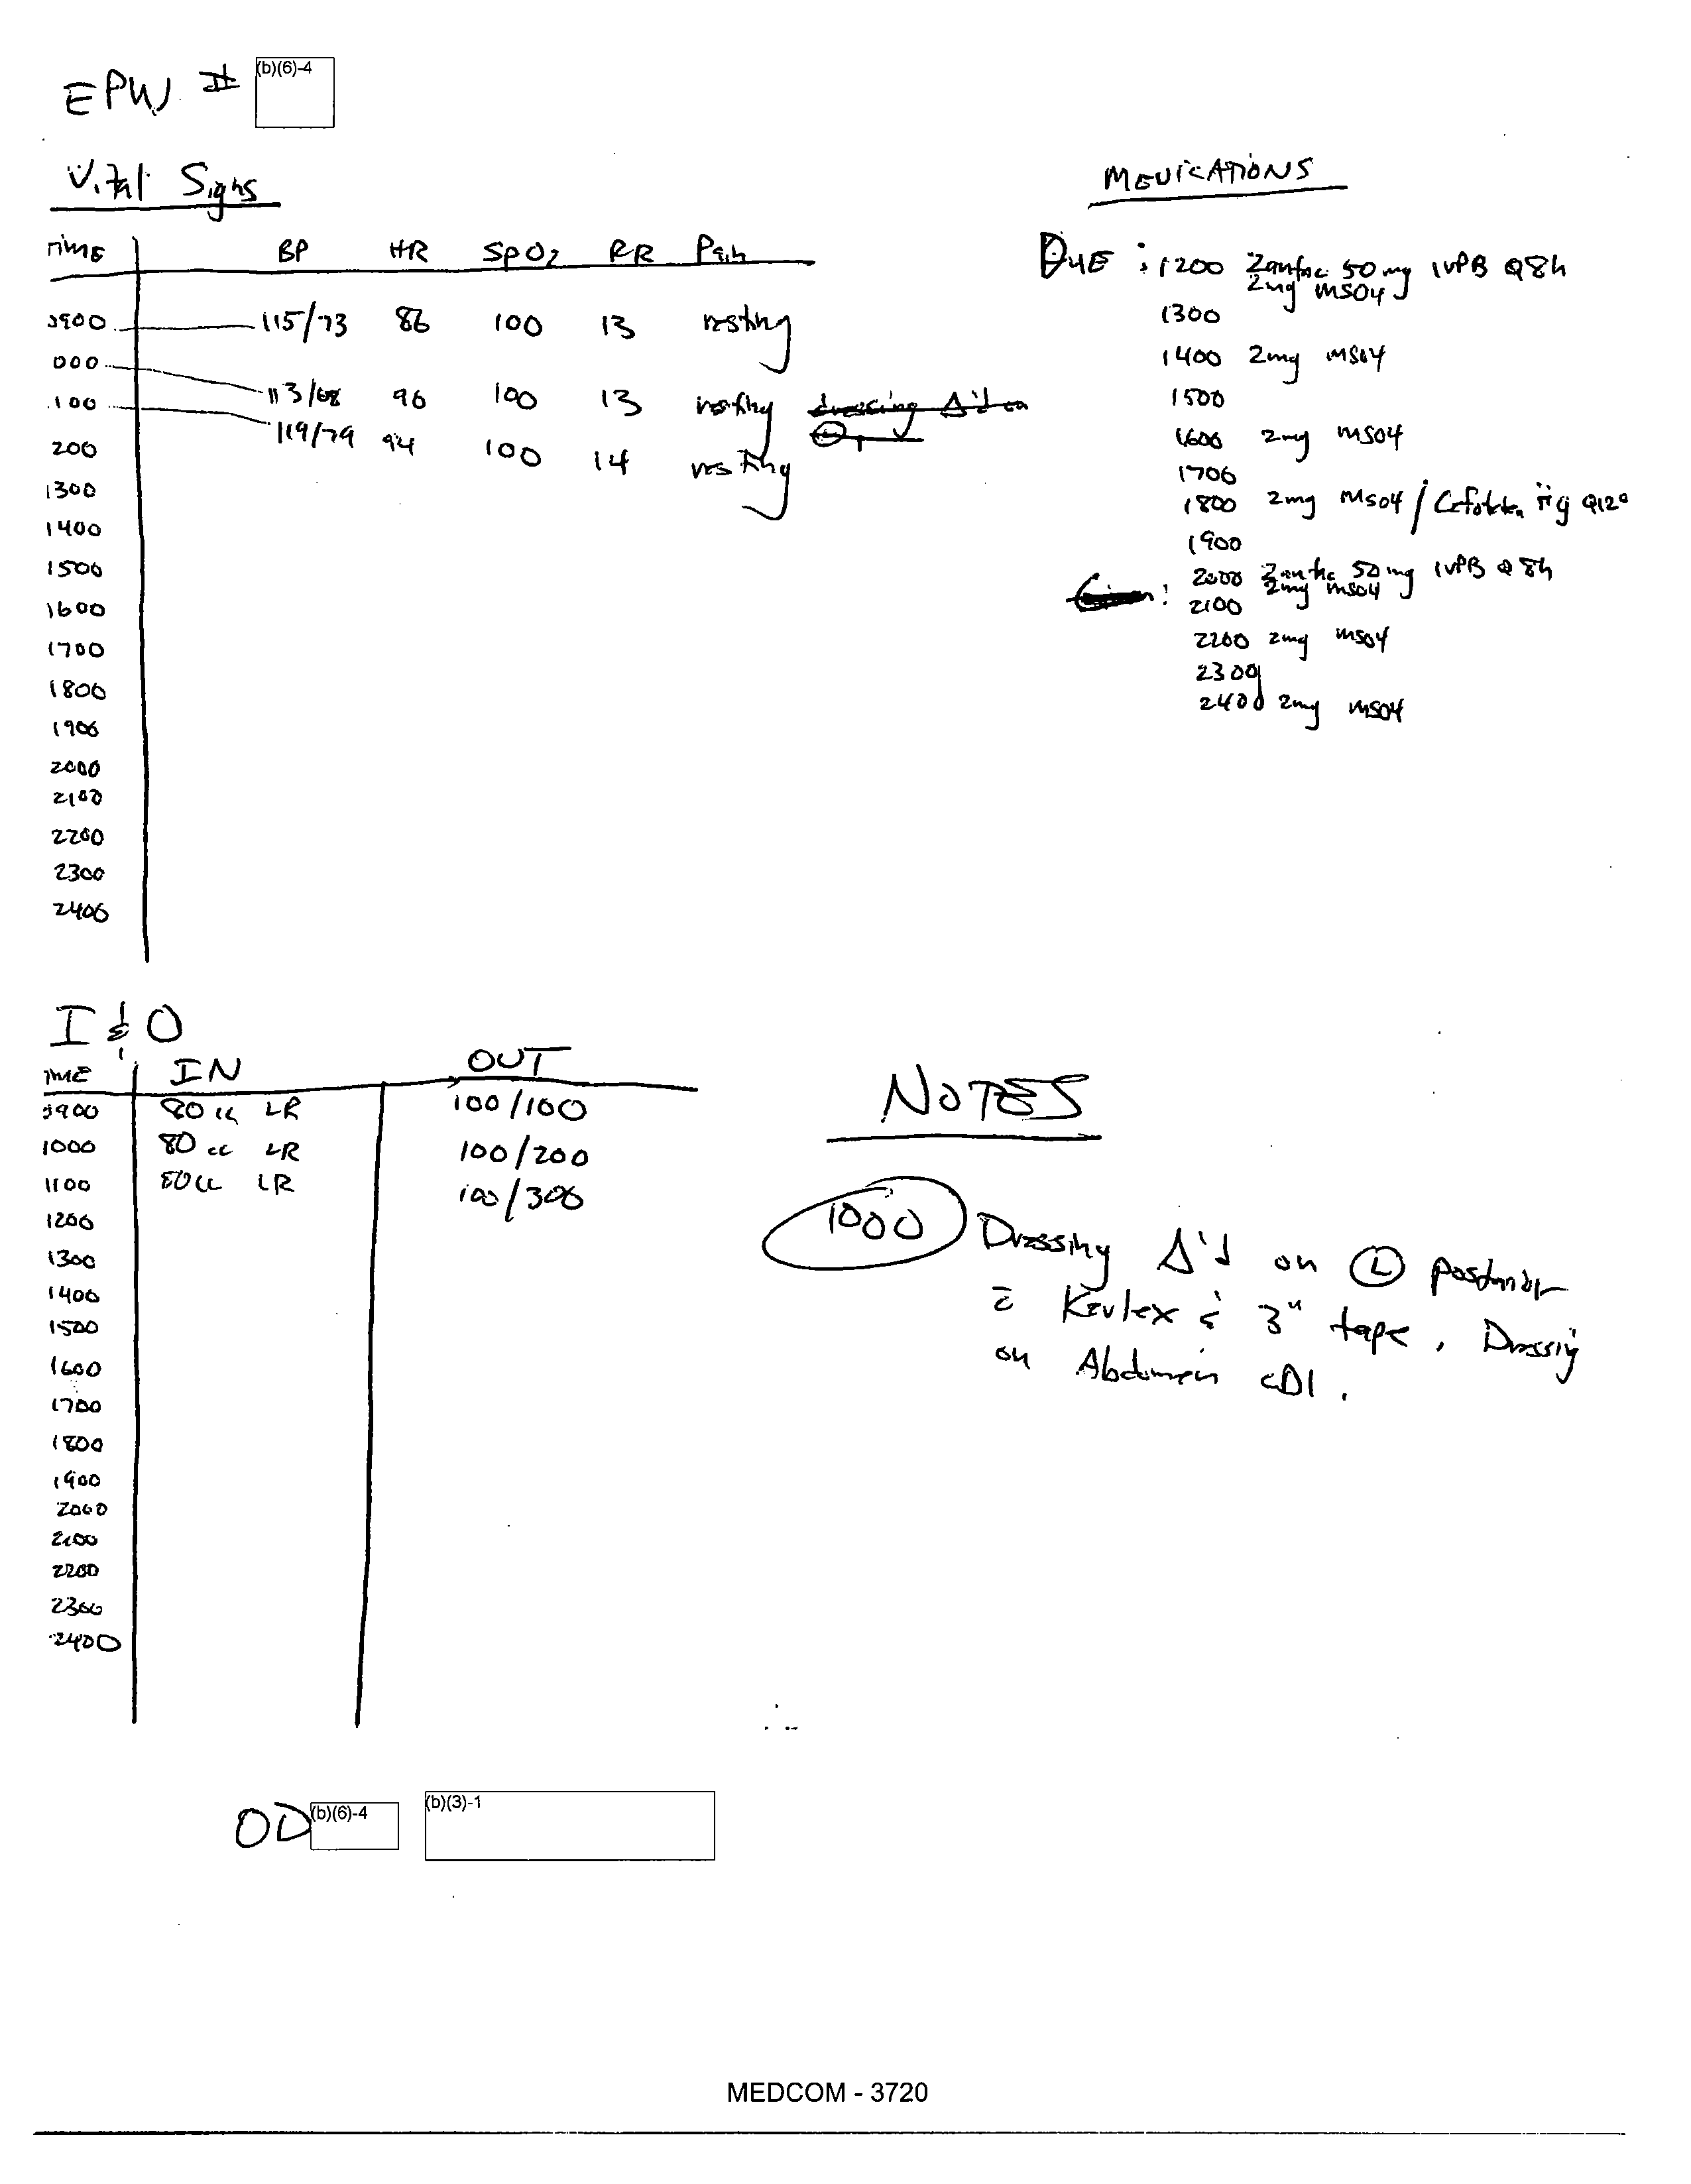 EPW # (b)(6)-4
Vital Signs
TIME BP HR SpO2 RR Pain
0900 115/73 86 100 13 resting
000 113/68 96 100 13 resting dressing Δ'd on
100 119/79 94 100 14 resting
200
1300
1400
1500
1600
1700
1800
1900
2000
2100
2200
2300
2400
MEDICATIONS
DUE : 1200 Zantac 50mg IVPB Q8h
2mg MSO4
1300
1400 2mg MSO4
1500
1600 2mg MSO4
1700
1800 2mg MSO4 / Cefotetan iig Q12°
1900
2000 Zantac 50mg IVPB Q8h
2mg MSO4
: 2100
2200 2mg MSO4
2300
2400 2mg MSO4
I & O
TIME IN OUT
0900 80cc LR 100/100
1000 80cc LR 100/200
1100 80cc LR 100/300
1200
1300
1400
1500
1600
1700
1800
1900
2000
2100
2200
2300
2400
NOTES
1000 Dressing Δ'd on Ⓛ posterior
c̄ Kerlex & 3" tape. Dressing
on Abdomen CDI.
OD (b)(6)-4 (b)(3)-1
MEDCOM - 3720